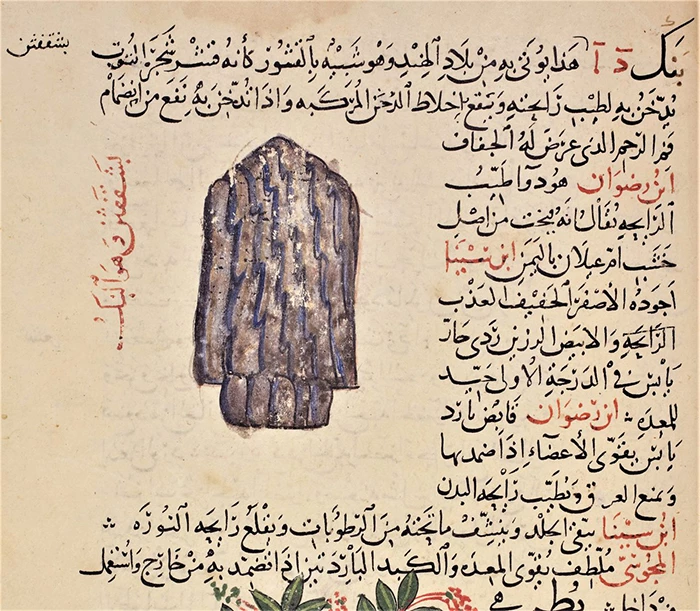 بشقفثن
بنك د آ هذا يوتى به من بلاد الهند وهو شبيه بالقشور كأنه قشر شجر التوت
يدخن به لطيب رائحته وينفع اخلاط الدخن المركبه واذا تدخن به نفع من انضمام
فم الرحم الذى عرض له الجفاف
ابن رضوان هو دوا طيب
الرايحه يقال انه ينحت من اصل
خشب ام غيلان باليمن ابن سينا
اجوده الاصفر الخفيف العذب
الرايحه والابيض الرزين ردى حار
يابس فى الدرجة الاولى جيد
للمعده ابن رضوان قابض بارد
يابس يقوى الأعضاء اذا ضمد بها
ويمنع العرق ويطيب رايحه البدن
ابن سينا ينقى الجلد وينشف ما تحته من الرطوبات ويقلع رايحه النوره
المجوسى ملطف يقوى المعده والكبد الباردتين اذا تضمد به من خارج واستعمل
بشقفثن وهو البنك